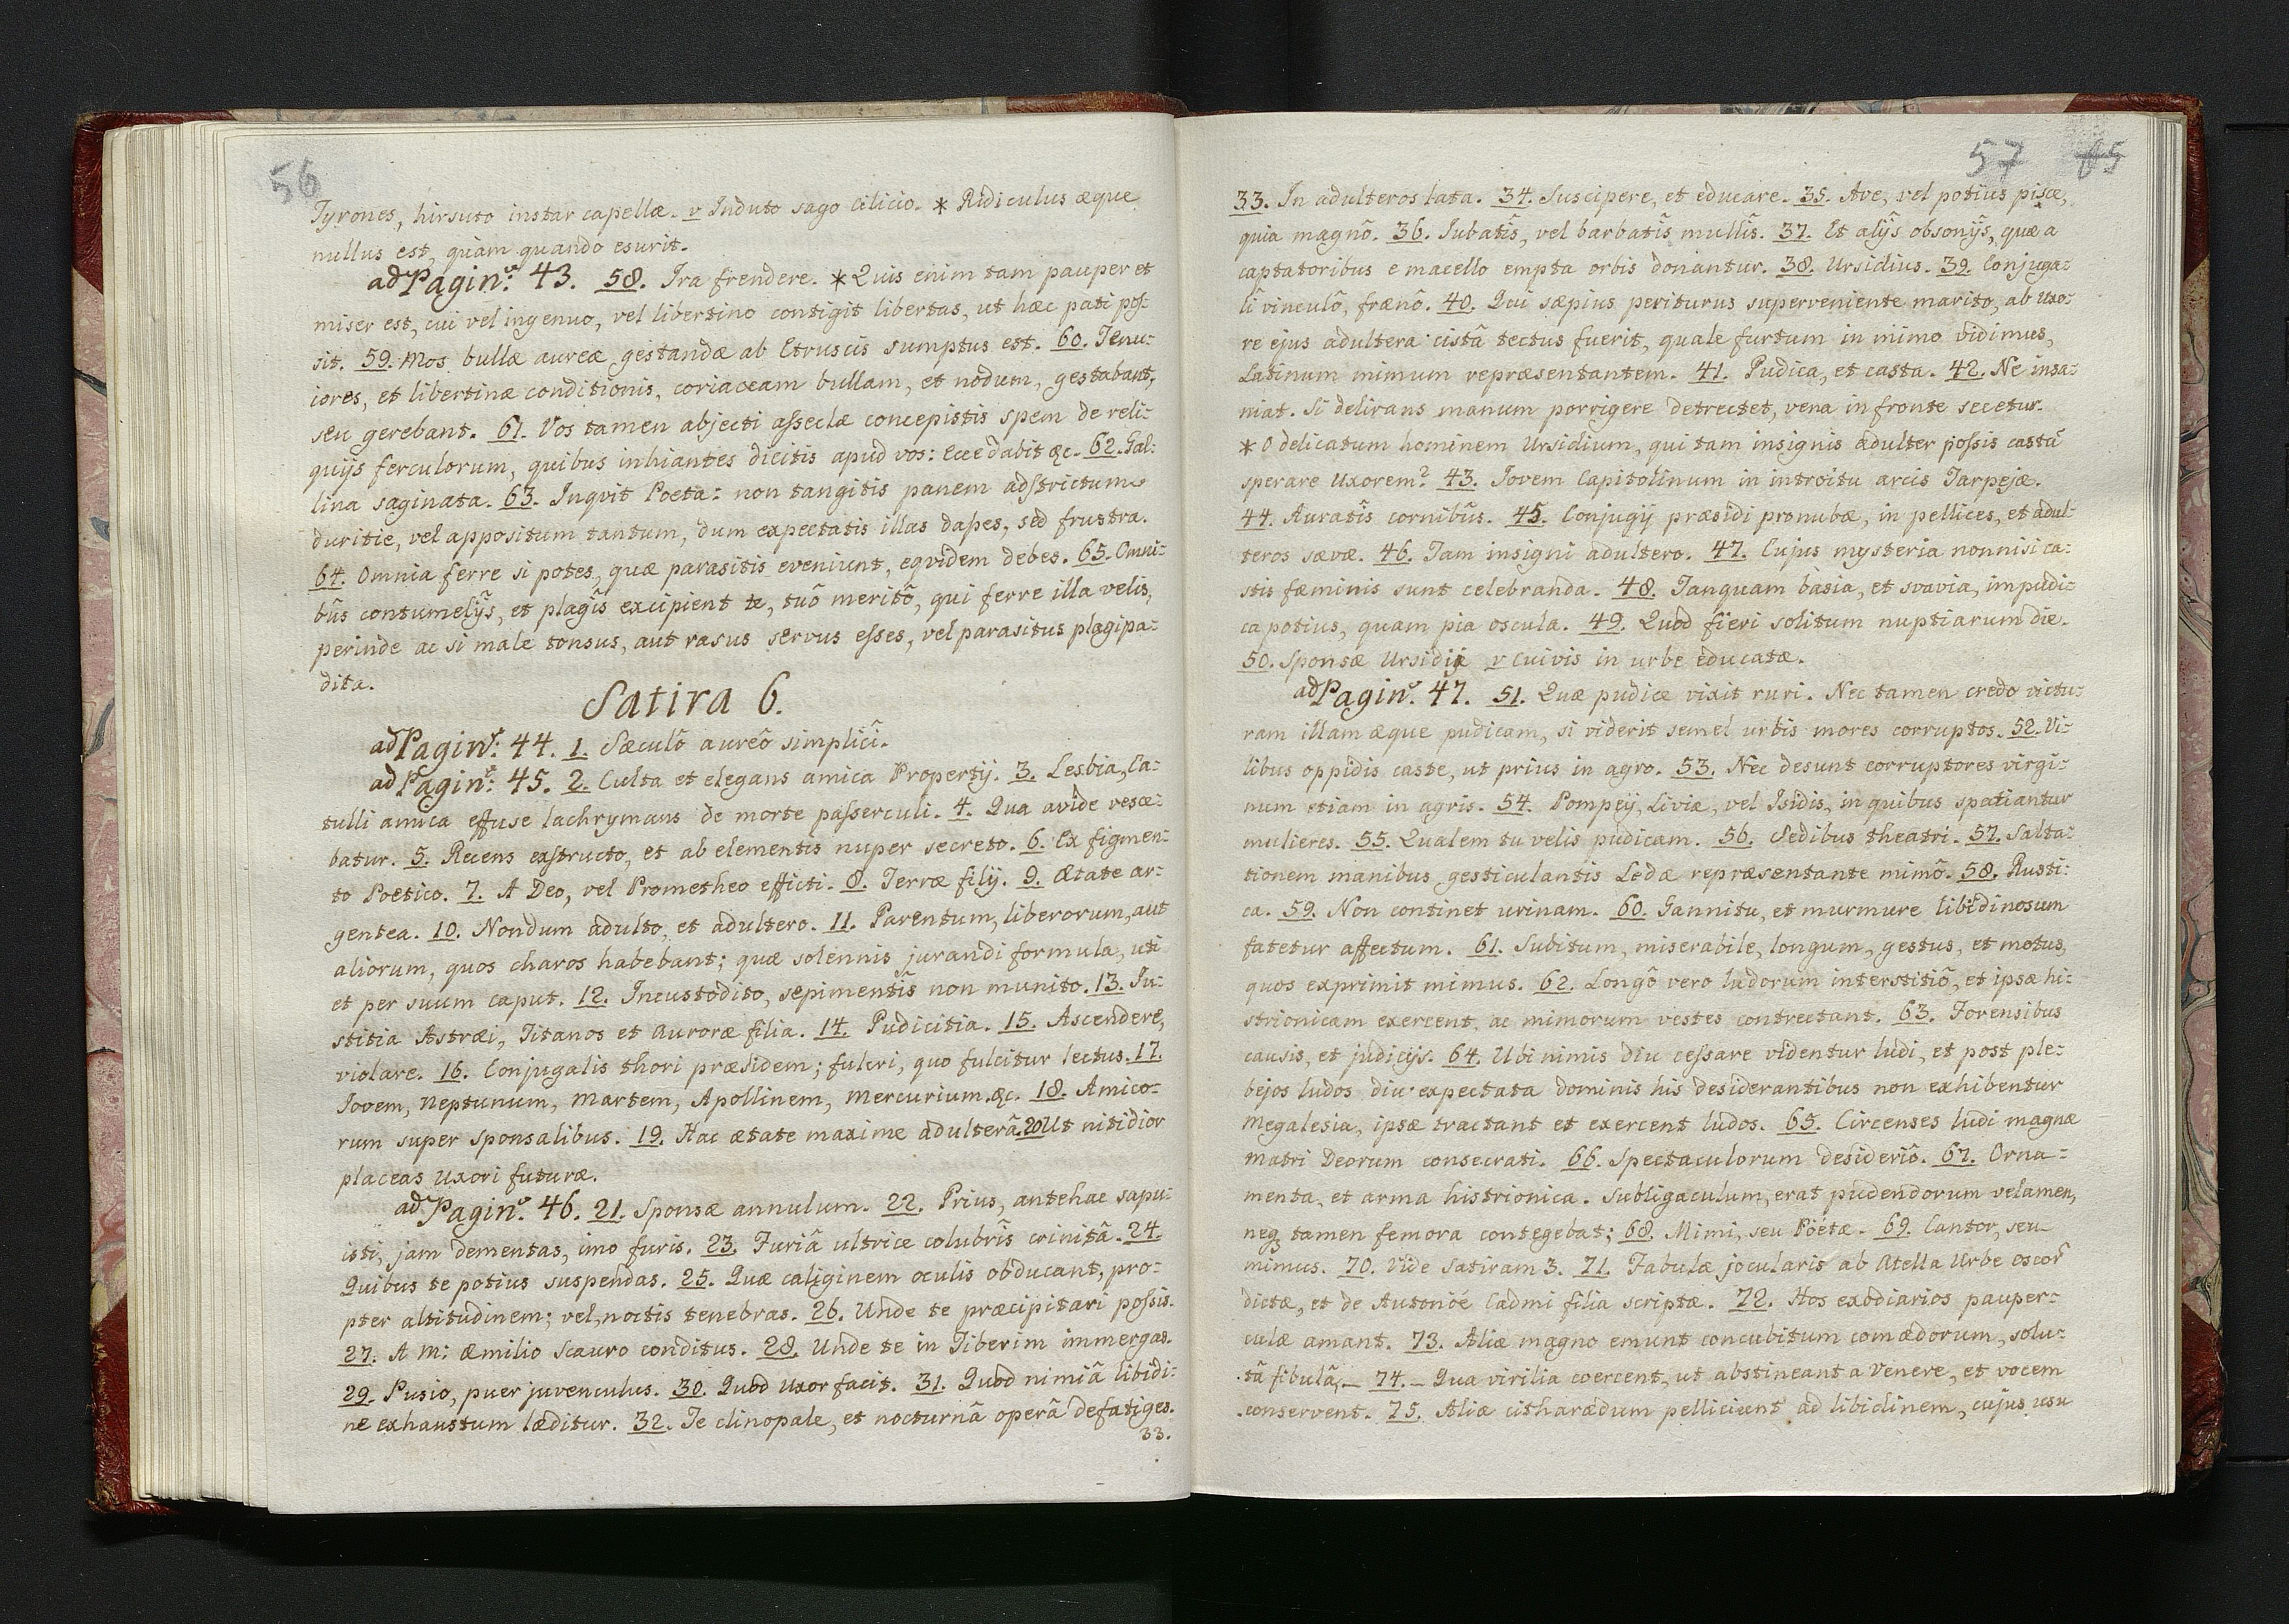 56
Tyrones, hirsuto instar capellæ. v Induto sago cilicio. * Ridiculus æque
nullus est, quàm quando esurit.
ad Pagin. 43. 58. Ira frendere. * Quis enim tam pauper et
miser est, cui vel ingenuo, vel libertino contigit libertas, ut hæc pati pos-
sit. 59. Mos bullæ aureæ gestandæ ab Etruscis sumptus est. 60. Tenu-
iores, et libertinæ conditionis, coriaceam bullam, et nodum, gestabant,
seu gerebant. 61. Vos tamen abjecti asseclæ concepistis spem de reli-
quijs ferculorum, quibus inhiantes dicitis apud vos: Ecce dabit &c. 62. Gal-
lina saginata. 63. Inqvit Poeta: non tangitis panem adstrictum
duritie, vel appositum tantum, dum expectatis illas dapes, sed frustra.
64. Omnia ferre si potes, quæ parasitis eveniunt, eqvidem debes. 65. Omni-
bûs contumelijs, et plagîs excipient te, tuô meritô, qui ferre illa velis,
perinde ac si male tonsus, aut rasus servus esses, vel parasitus plagipa-
dita.
Satira 6.
ad Pagin. 44. 1. Sæculô aureô simplicî.
ad Pagin. 45. 2. Culta et elegans amica Propertij. 3. Lesbia, Ca-
tulli amica effuse lachrymans de morte passerculi. 4. Qua avide vesce-
batur. 5. Recens exstructo, et ab elementis nuper secreto. 6. Ex figmen-
to Poëtico. 7. A Deo, vel Prometheo efficti. 8. Terræ filij. 9. Ætate ar-
gentea. 10. Nondum adulto, et adultero. 11. Parentum, liberorum, aut
aliorum, quos charos habebant; quæ solennis jurandi formula, uti
et per suum caput. 12. Incustodito, sepimentîs non munito. 13. Iu-
stitia Astræi, Titanos et Auroræ filia. 14. Pudicitia. 15. Ascendere,
violare. 16. Conjugalis thori præsidem; fulcri, quo fulcitur lectus. 17.
Iovem, Neptunum, Martem, Apollinem, Mercurium. &c. 18. Amico-
rum super sponsalibus. 19. Hac ætate maxime adulterâ. 20 Ut nitidior
placeas uxori futuræ.
ad Pagin. 46. 21. Sponsæ annulum. 22. Prius, antehac sapu-
isti, jam dementas, imo furis. 23. Furiâ ultrice colubrîs crinitâ. 24.
Quibus te potius suspendas. 25. Quæ caliginem oculis obducant, pro-
pter altitudinem; vel, noctis tenebras. 26. Unde te præcipitari possis.
27. A M: Æmilio Scauro conditus. 28. Unde te in Tiberim immergas.
29. Pusio, puer juvenculus. 30. Quod uxor facit. 31. Quod nimiâ libidi-
ne exhaustum læditur. 32. Te clinopale, et nocturnâ operâ defatiges.
33.
57 45
33. In adulteros lata. 34. Suscipere, et educare. 35. Ave, vel potiùs pisce,
quia magnô. 36. Iubatîs, vel barbatîs mullîs. 37. Et alijs obsonijs, quæ a
captatoribus e macello empta orbis donantur. 38. Ursidius. 39. Conjuga-
li vinculô, frænô. 40. Qui sæpius periturus superveniente marito, ab Uxo-
re ejus adultera cistâ tectus fuerit, quale furtum in mimo vidimus,
Latinum mimum repræsentantem. 41. Pudica, et casta. 42. Ne insa-
niat. Si delirans manum porrigere detrectet, vena in fronte secetur.
* O delicatum hominem Ursidium, qui tam insignis adulter possis castâ
sperare Uxorem? 43. Iovem Capitolinum in introitu arcis Tarpejæ.
44. Auratîs cornibûs. 45. Conjugij præsidi pronubæ, in pellices, et adul-
teros sævæ. 46. Tam insigni adultero. 47. Cujus mysteria nonnisi ca-
stis fæminis sunt celebranda. 48. Tanquam basia, et svavia, impudi-
ca potius, quam pia oscula. 49. Quod fieri solitum nuptiarum die.
50. Sponsæ Ursidij v Cuivis in urbe educatæ.
ad Pagin. 47. 51. Quæ pudice vixit ruri. Nec tamen credo victu-
ram illam æque pudicam, si viderit semel urbis mores corruptos. 52. Vi-
libus oppidis caste, ut prius in agro. 53. Nec desunt corruptores virgi-
num etiam in agris. 54. Pompeij, Liviæ, vel Isidis, in quibus spatiantur
mulieres. 55. Qualem tu velis pudicam. 56. Sedibus theatri. 57. Salta-
tionem manibus gesticulantis Ledæ repræsentante mimô. 58. Rusti-
ca. 59. Non continet urinam. 60. Gannitu, et murmure libidinosum
fatetur affectum. 61. Subitum, miserabile, longum, gestus, et motus,
quos exprimit mimus. 62. Longô vero ludorum interstitiô, et ipsæ hi-
strionicam exercent, ac mimorum vestes contrectant. 63. Forensibus
causis, et judicijs. 64. Ubi nimis diu cessare videntur ludi, et post ple-
bejos ludos diu expectata dominis his desiderantibus non exhibentur
Megalesia, ipsæ tractant et exercent ludos. 65. Circenses ludi magnæ
Matri Deorum consecrati. 66. Spectaculorum desideriô. 67. Orna-
menta, et arma histrionica. Subligaculum, erat pudendorum velamen,
neq tamen femora contegebat; 68. Mimi, seu Poëtæ. 69. Cantor, seu
mimus. 70. Vide Satiram 3. 71. Fabulæ jocularis ab Atella Urbe oscor
dictæ, et de Autonöé Cadmi filia scriptæ. 72. Hos exodiarios pauper-
culæ amant. 73. Aliæ magno emunt concubitum comædorum, solu-
tâ fibulâ, — 74. — Qua virilia coercent, ut abstineant a Venere, et vocem
conservent. 75. Aliæ citharædum pelliciunt ad libidinem, cujus usu